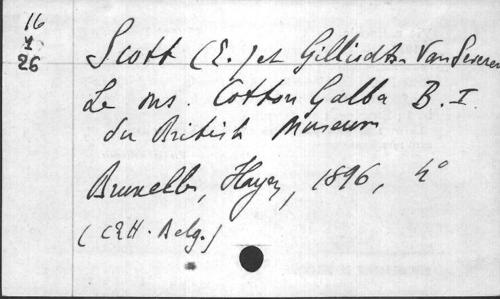 16
1
26
Scott (E.) et Gilliodts-Van Severen
Le ms. Cotton Galba B. I.
du British Museum
Bruxelles, Hayez, 1896, 4°
(CRH. Belg.)